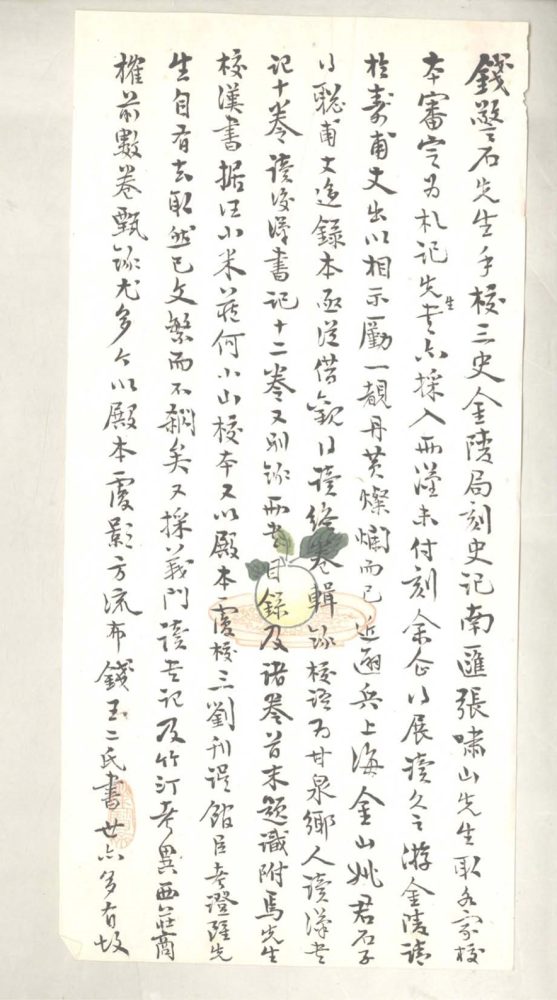 錢警石先生手校三史金陵局刻史記南匯張嘯山先生取各家校
本審定為札記先生書亦採入兩漢未付刻余企以展讀久之游金陵謁
於壽甫丈出以相示勵一觀丹黃燦爛而已近避兵上海金山姚君石子
以聰甫丈迻錄本亟從借觀日讀終卷輯錄校語為甘泉鄉人讀漢書
記十卷讀後漢書記十二卷又別錄兩書目錄及諸卷首末題識附焉先生
校漢書据汪小米蓝何小山校本又以殿本覆校三劉刊誤館臣考證雖先
生自有去取然已文繁而不翦矣又採義門讀書記及竹汀考異西莊商
榷前數卷甄錄尤多今以殿本覆影方流布錢王二氏書世亦多有故